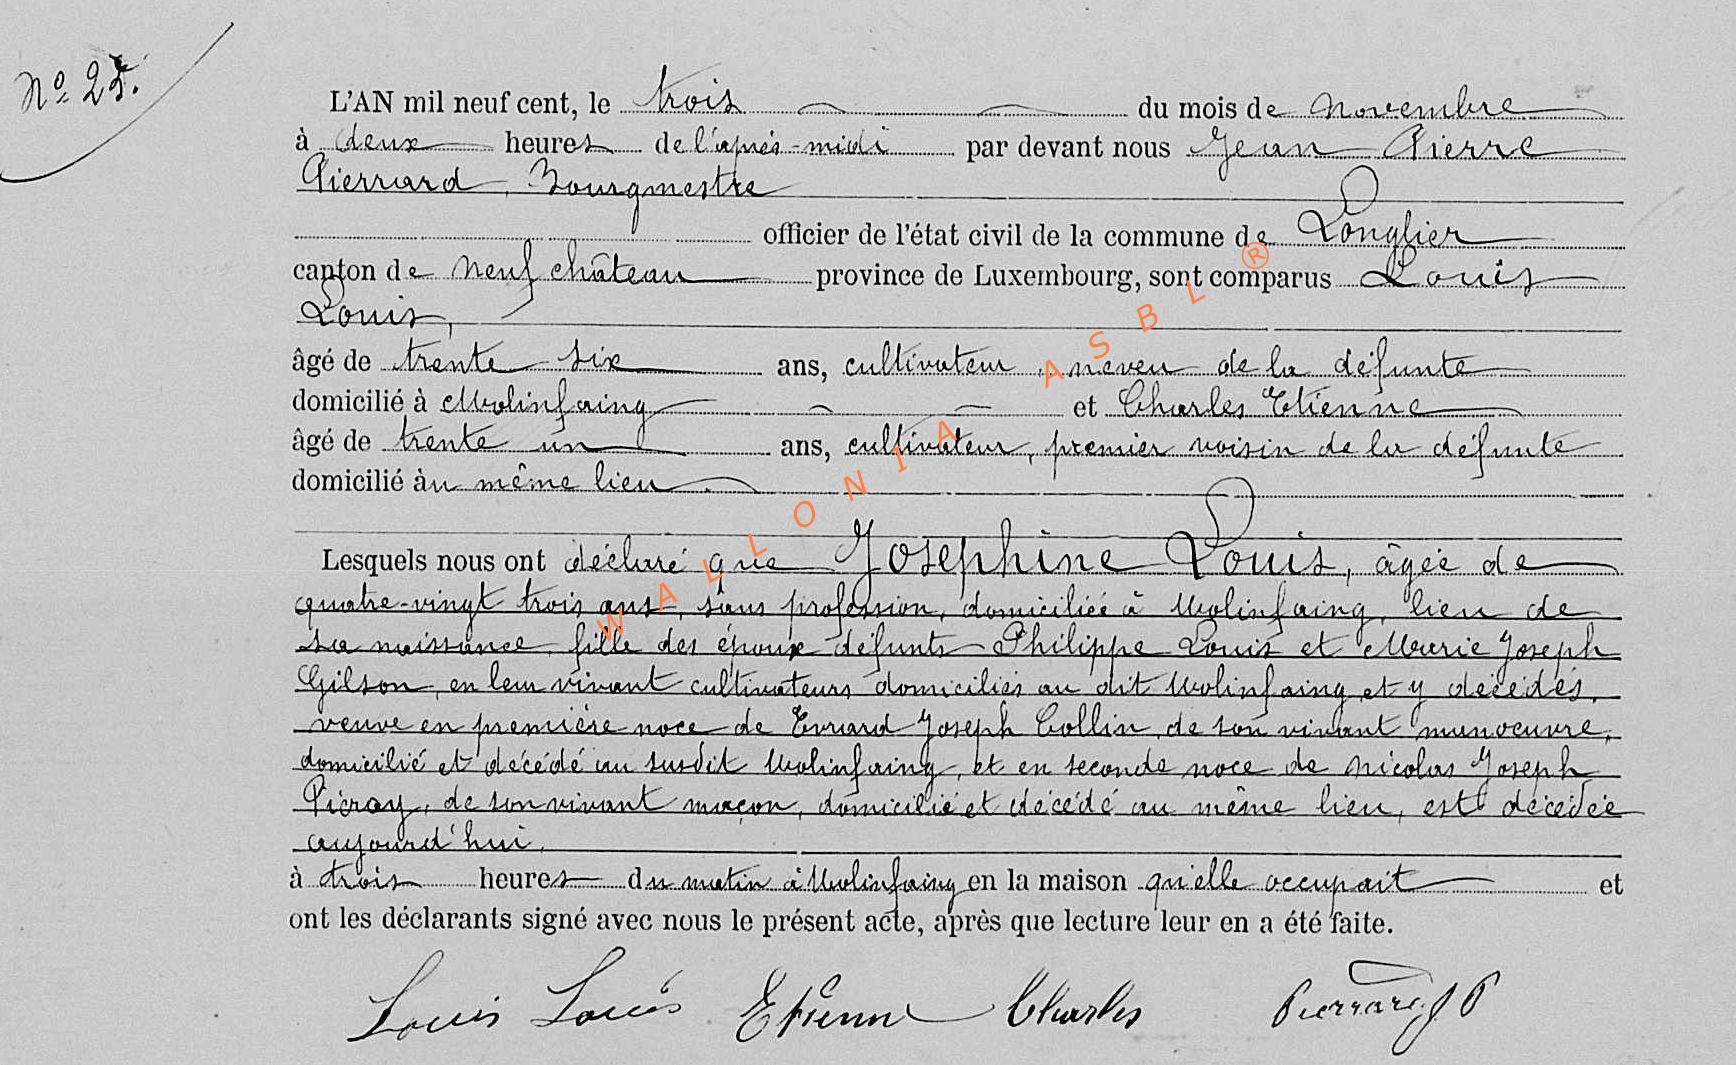 Nº 25.
L'AN mil neuf cent, le trois du mois de novembre
à deux heures de l'après-midi par devant nous Jean Pierre
Pierrard, Bourgmestre
officier de l'état civil de la commune de Longlier
canton de Neufchâteau province de Luxembourg, sont comparus Louis
Louis,
âgé de trente six ans, cultivateur, neveu de la défunte
domicilié à Molinfaing et Charles Etienne
âgé de trente un ans, cultivateur, premier voisin de la défunte
domicilié au même lieu.
Lesquels nous ont déclaré que Josephine Louis, âgée de
quatre-vingt trois ans, sans profession, domiciliée à Molinfaing, lieu de
sa naissance, fille des époux défunts Philippe Louis et Marie Joseph
Gilson, en leur vivant cultivateurs domiciliés au dit Molinfaing et y décédés,
veuve en première noce de Evrard Joseph Collin, de son vivant manoeuvre,
domicilié et décédé au susdit Molinfaing, et en seconde noce de Nicolas Joseph
Pieray, de son vivant maçon, domicilié et décédé au même lieu, est décédée
aujourd'hui,
à trois heures du matin à Molinfaing en la maison qu'elle occupait et
ont les déclarants signé avec nous le présent acte, après que lecture leur en a été faite.
Louis Louis Etienne Charles Pierrard J P
WALLONIA ASBL ®